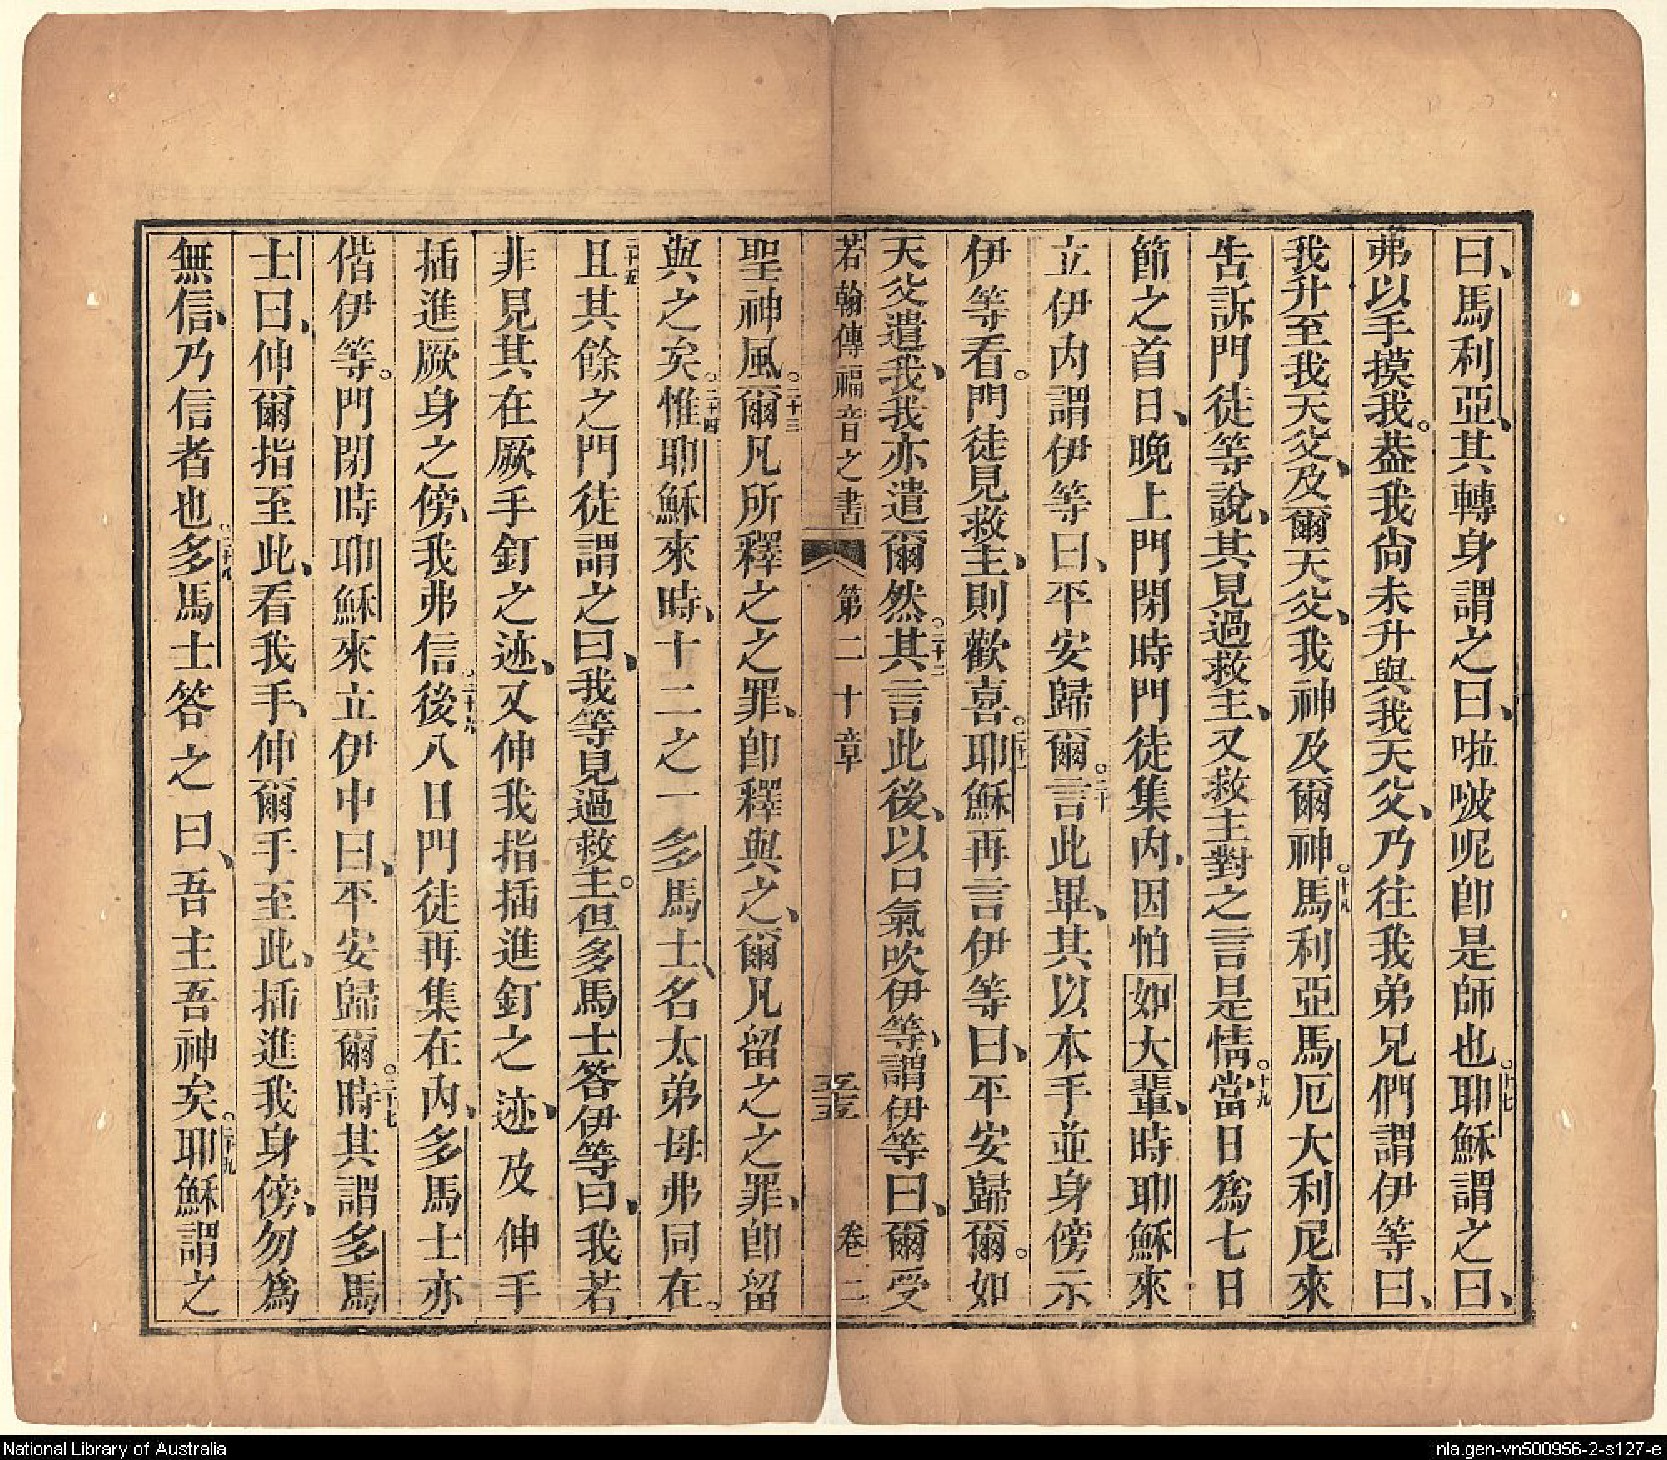 曰、馬利亞、其轉身謂之曰、啦㗶呢卽是師也。十七耶穌謂之曰、
弗以手摸我。葢我尚未升與我天父、乃往我弟兄們謂伊等曰、
我升至我天父、及爾天父、我神及爾神。十八馬利亞馬厄大利尼來
告訴門徒等說、其見過救主、又救主對之言是情。十九當日爲七日
節之首日、晚上門閉時門徒集內、因怕如大輩、時耶穌來
立伊內謂伊等曰、平安歸爾。二十言此畢、其以本手並身傍示
伊等看。門徒見救主、則歡喜。二十一耶穌再言伊等曰、平安歸爾。如
天父遣我、我亦遣爾然。二十二其言此後、以口氣吹伊等、謂伊等曰、爾受
若翰傳福音之書 第二十章 五五 卷二
聖神風。二十三爾凡所釋之之罪、卽釋與之、爾凡留之之罪、卽留
與之矣。二十四惟耶穌來時、十二之一多馬士、名太弟母弗同在。
二十五且其餘之門徒謂之曰、我等見過救主。但多馬士答伊等曰、我若
非見其在厥手釘之迹、又伸我指插進釘之迹、及伸手
插進厥身之傍、我弗信。二十六後八日門徒再集在內、多馬士亦
偕伊等。門閉時耶穌來立伊中曰、平安歸爾。二十七時其謂多馬
士曰、伸爾指至此、看我手、伸爾手至此、插進我身傍、勿爲
無信、乃信者也。二十八多馬士答之曰、吾主吾神矣。二十九耶穌謂之
National Library of Australia
nla.gen-vn500956-2-s127-e